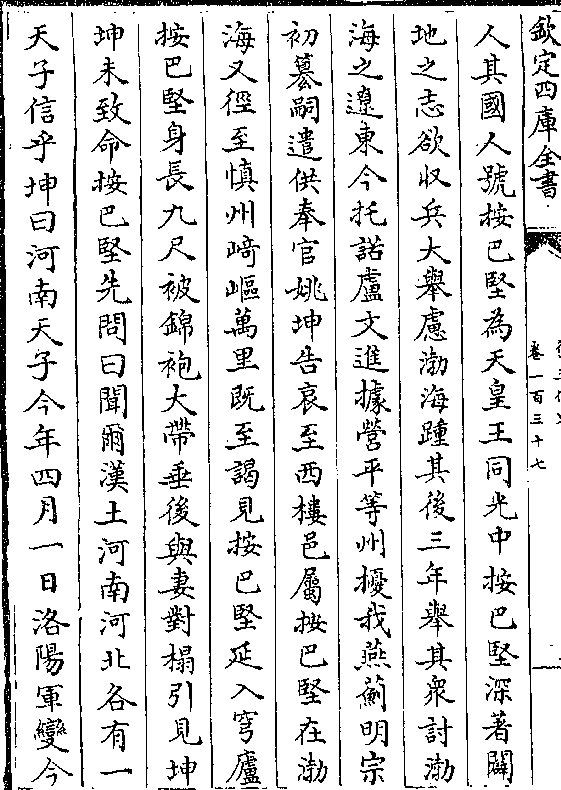 欽定四庫全書
卷一百三十七
人其國人號按巴堅為天皇王同光中按巴堅深著闢
地之志欲収兵大舉慮渤海踵其後三年舉其衆討渤
海之遼東令托諾盧文進據營平等州擾我燕薊明宗
初纂嗣遣供奉官姚坤告哀至西樓邑屬按巴堅在渤
海又徑至慎州崎嶇萬里既至謁見按巴堅延入穹廬
按巴堅身長九尺被錦袍大帶垂後與妻對榻引見坤
坤未致命按巴堅先問曰聞爾漢土河南河北各有一
天子信乎坤曰河南天子今年四月一日洛陽軍變今